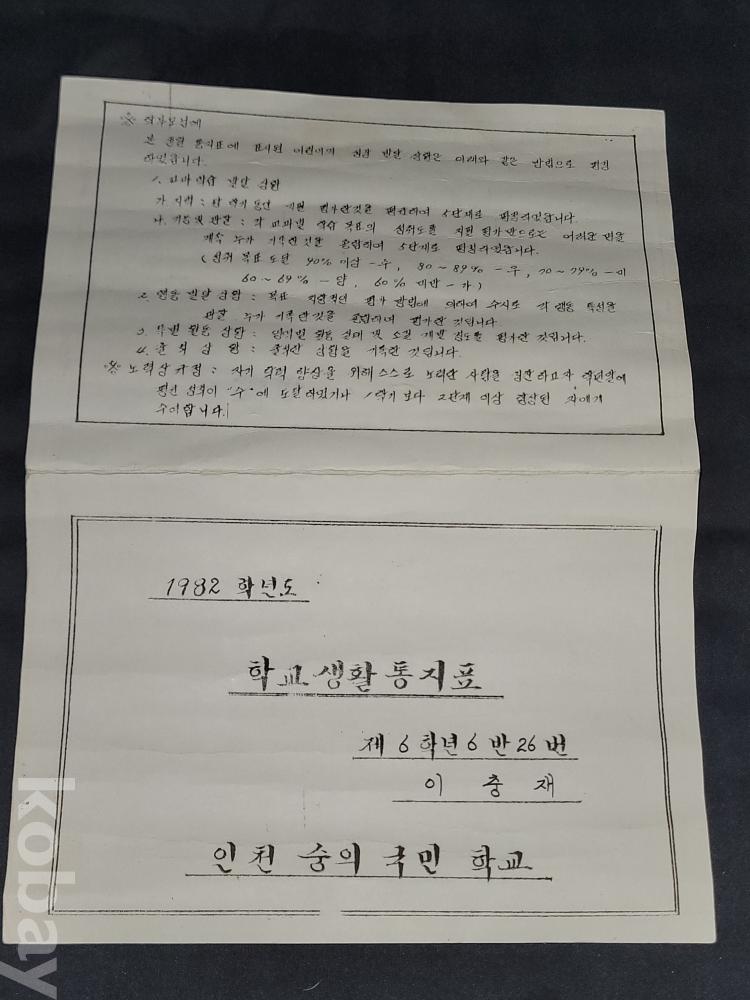 ※ 학부모님께
본 생활 통지표에 표시된 어린이의 성장 발달 상황은 아래와 같은 방법으로 평정
하였습니다.
1. 교과학습 발달 상황
가. 지력: 한 학기 동안 지필 평가한것을 평균하여 5단계로 평정하였습니다.
나. 기능 및 관찰: 각 교과별 학습 목표의 성취도를 지필 평가만으로는 어려운 면을
계속 누가 기록한 것을 종합하여 5단계로 평정하였습니다.
(성취 목표 도달 90% 이상 - 수, 80~89% - 우, 70~79% - 미
60~69% - 양, 60% 미만 - 가)
2. 행동 발달 상황: 목표 지향적인 평가 방법에 의하여 수시로 각 행동 특성을
관찰 누가 기록한 것을 종합하여 평가한 것입니다.
3. 특별 활동 상황: 참여 활동 실태 및 소질 계발 정도를 평가한 것입니다.
4. 출석 상황: 출석한 상황을 기록한 것입니다.
※ 노력상 규정: 자기 학력 향상을 위해 스스로 노력한 사람을 칭찬하고자 학년말에
평점 성적이 "수"에 도달하였거나 1학기 보다 2단계 이상 향상된 자에게
수여합니다.
1982 학년도
학교생활통지표
제 6 학년 6 반 26 번
이 충 재
인천 숭의 국민 학교
kobay